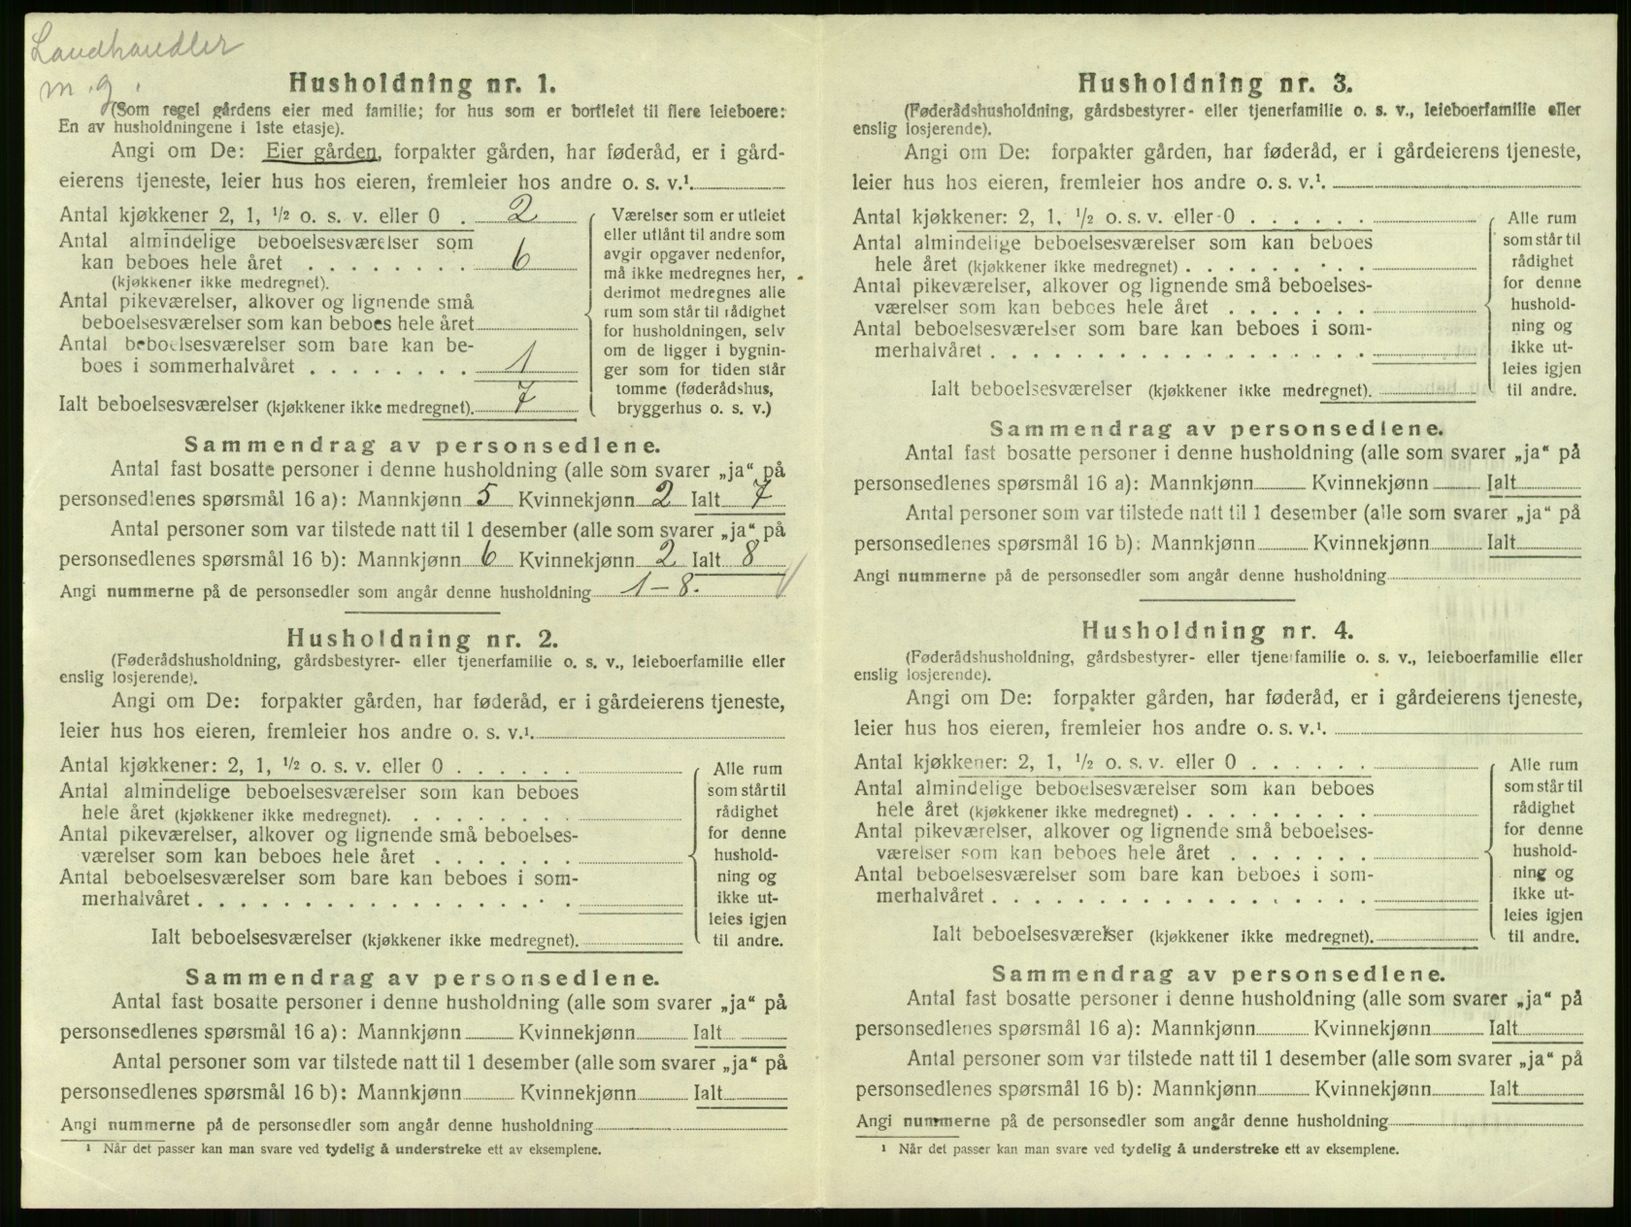 Landhandler
m. g.
Husholdning nr. 1.
(Som regel gårdens eier med familie; for hus som er bortleiet til flere leieboere:
En av husholdningene i 1ste etasje).
Angi om De: Eier gården, forpakter gården, har føderåd, er i gård-
eierens tjeneste, leier hus hos eieren, fremleier hos andre o. s. v.¹
Antal kjøkkener 2, 1, ½ o. s. v. eller 0 . 2
Antal almindelige beboelsesværelser som
kan beboes hele året . . . . . . . . 6
(kjøkkener ikke medregnet).
Antal pikeværelser, alkover og lignende små
beboelsesværelser som kan beboes hele året
Antal beboelsesværelser som bare kan be-
boes i sommerhalvåret . . . . . . . . 1
Ialt beboelsesværelser (kjøkkener ikke medregnet). 7
Værelser som er utleiet
eller utlånt til andre som
avgir opgaver nedenfor,
må ikke medregnes her,
derimot medregnes alle
rum som står til rådighet
for husholdningen, selv
om de ligger i bygnin-
ger som for tiden står
tomme (føderådshus,
bryggerhus o. s. v.)
Sammendrag av personsedlene.
Antal fast bosatte personer i denne husholdning (alle som svarer „ja“ på
personsedlenes spørsmål 16 a): Mannkjønn 5 Kvinnekjønn 2 Ialt 7
Antal personer som var tilstede natt til 1 desember (alle som svarer „ja“ på
personsedlenes spørsmål 16 b): Mannkjønn 6 Kvinnekjønn 2 Ialt 8
Angi nummerne på de personsedler som angår denne husholdning 1 - 8.
Husholdning nr. 2.
(Føderådshusholdning, gårdsbestyrer- eller tjenerfamilie o. s. v., leieboerfamilie eller
enslig losjerende).
Angi om De: forpakter gården, har føderåd, er i gårdeierens tjeneste,
leier hus hos eieren, fremleier hos andre o. s. v.¹.
Antal kjøkkener: 2, 1, ½ o. s. v. eller 0 . . . . . .
Antal almindelige beboelsesværelser som kan beboes
hele året (kjøkkener ikke medregnet). . . . . . . . .
Antal pikeværelser, alkover og lignende små beboelses-
værelser som kan beboes hele året . . . . . . .
Antal beboelsesværelser som bare kan beboes i som-
merhalvåret . . . . . . . . . . . . . . . . . .
Ialt beboelsesværelser (kjøkkener ikke medregnet).
Alle rum
som står til
rådighet
for denne
hushold-
ning og
ikke ut-
leies igjen
til andre.
Sammendrag av personsedlene.
Antal fast bosatte personer i denne husholdning (alle som svarer „ja“ på
personsedlenes spørsmål 16 a): Mannkjønn Kvinnekjønn Ialt
Antal personer som var tilstede natt til 1 desember (alle som svarer „ja“ på
personsedlenes spørsmål 16 b): Mannkjønn Kvinnekjønn Ialt
Angi nummerne på de personsedler som angår denne husholdning
¹ Når det passer kan man svare ved tydelig å understreke ett av eksemplene.
Husholdning nr. 3.
(Føderådshusholdning, gårdsbestyrer- eller tjenerfamilie o. s. v., leieboerfamilie eller
enslig losjerende).
Angi om De: forpakter gården, har føderåd, er i gårdeierens tjeneste,
leier hus hos eieren, fremleier hos andre o. s. v.¹.
Antal kjøkkener: 2, 1, ½ o. s. v. eller 0 . . . . . .
Antal almindelige beboelsesværelser som kan beboes
hele året (kjøkkener ikke medregnet) . . . . . . . . .
Antal pikeværelser, alkover og lignende små beboelses-
værelser som kan beboes hele året . . . . . . .
Antal beboelsesværelser som bare kan beboes i som-
merhalvåret . . . . . . . . . . . . . . . . . .
Ialt beboelsesværelser (kjøkkener ikke medregnet).
Alle rum
som står til
rådighet
for denne
hushold-
ning og
ikke ut-
leies igjen
til andre.
Sammendrag av personsedlene.
Antal fast bosatte personer i denne husholdning (alle som svarer „ja“ på
personsedlenes spørsmål 16 a): Mannkjønn Kvinnekjønn Ialt
Antal personer som var tilstede natt til 1 desember (alle som svarer „ja“ på
personsedlenes spørsmål 16 b): Mannkjønn Kvinnekjønn Ialt
Angi nummerne på de personsedler som angår denne husholdning
Husholdning nr. 4.
(Føderådshusholdning, gårdsbestyrer- eller tjenerfamilie o. s. v., leieboerfamilie eller
enslig losjerende).
Angi om De: forpakter gården, har føderåd, er i gårdeierens tjeneste,
leier hus hos eieren, fremleier hos andre o. s. v.¹.
Antal kjøkkener: 2, 1, ½ o. s. v. eller 0 . . . . . .
Antal almindelige beboelsesværelser som kan beboes
hele året (kjøkkener ikke medregnet) . . . . . . . . .
Antal pikeværelser, alkover og lignende små beboelses-
værelser som kan beboes hele året . . . . . . .
Antal beboelsesværelser som bare kan beboes i som-
merhalvåret . . . . . . . . . . . . . . . . . .
Ialt beboelsesværelser (kjøkkener ikke medregnet).
Alle rum
som står til
rådighet
for denne
hushold-
ning og
ikke ut-
leies igjen
til andre.
Sammendrag av personsedlene.
Antal fast bosatte personer i denne husholdning (alle som svarer „ja“ på
personsedlenes spørsmål 16 a): Mannkjønn Kvinnekjønn Ialt
Antal personer som var tilstede natt til 1 desember (alle som svarer „ja“ på
personsedlenes spørsmål 16 b): Mannkjønn Kvinnekjønn Ialt
Angi nummerne på de personsedler som angår denne husholdning
¹ Når det passer kan man svare ved tydelig å understreke ett av eksemplene.